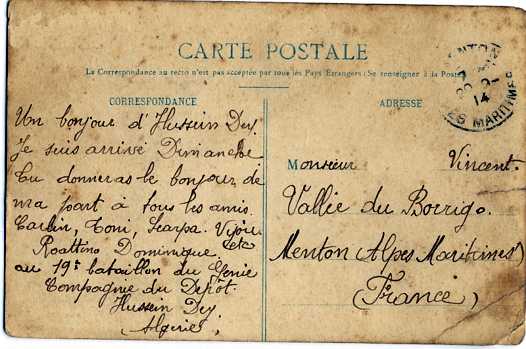 CARTE POSTALE
La Correspondance au recto n'est pas acceptée par tous les Pays Etrangers (Se renseigner à la Poste)
CORRESPONDANCE
ADRESSE
MENTON
14
ES MARITIMES
Un bonjour d'Hussein Dey.
Je suis arrivé Dimanche
Tu donneras le bonjour de
ma part à tous les amis.
Carlin, Toni, Scarpa.
etc
Roattino Dominique
au 19e bataillon du Génie
Compagnie du Dépôt.
Hussein Dey.
(Algérie)
Monsieur Vincent.
Vallée du Borrigo.
Menton (Alpes Maritimes)
(France)